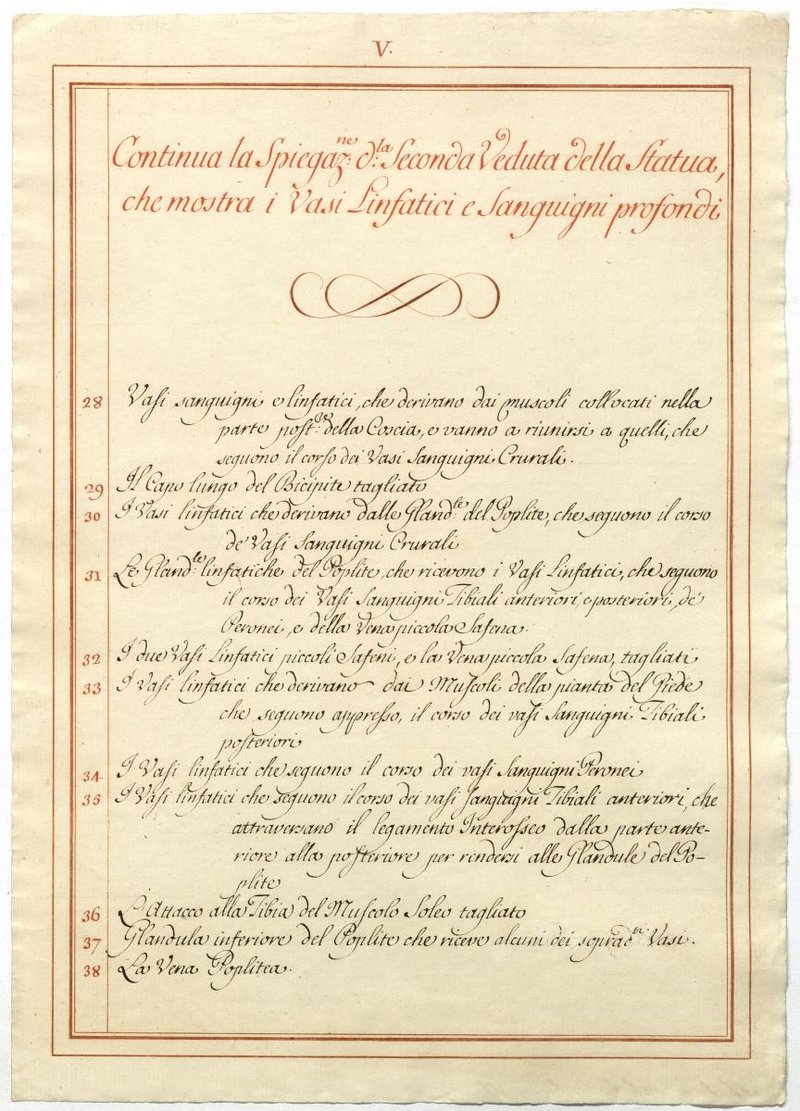 V.
Continua la Spiegaz.ne d.la Seconda Veduta della Statua,
che mostra i Vasi Linfatici e Sanguigni profondi
28 Vasi sanguigni e linfatici, che derivano dai muscoli collocati nella
parte post.re della Coscia, e vanno a riunirsi a quelli, che
seguono il corso dei Vasi Sanguigni Crurali.
29 Il Capo lungo del Bicipite tagliato
30 I Vasi linfatici che derivano dalle Gland.le del Poplite, che seguono il corso
de' Vasi Sanguigni Crurali
31 Le Gland.le linfatiche del Poplite, che ricevono i Vasi Linfatici, che seguono
il corso dei Vasi Sanguigni Tibiali anteriori, e posteriori, de'
Peronei, e della Vena piccola Safena.
32 I due Vasi Linfatici piccoli Safeni, e la Vena piccola Safena, tagliati
33 I Vasi linfatici che derivano dai Muscoli della pianta del Piede
che seguono appresso, il corso dei vasi Sanguigni Tibiali
posteriori
34 I Vasi linfatici che seguono il corso dei vasi Sanguigni Peronei
35 I Vasi linfatici che seguono il corso dei vasi Sanguigni Tibiali anteriori, che
attraversano il legamento Interosseo dalla parte ante-
riore alla posteriore per rendersi alle Glandule del Po-
plite
36 L'Attacco alla Tibia del Muscolo Soleo tagliato
37 Glandula inferiore del Poplite che riceve alcuni dei soprad.ti Vasi.
38 La Vena Poplitea.